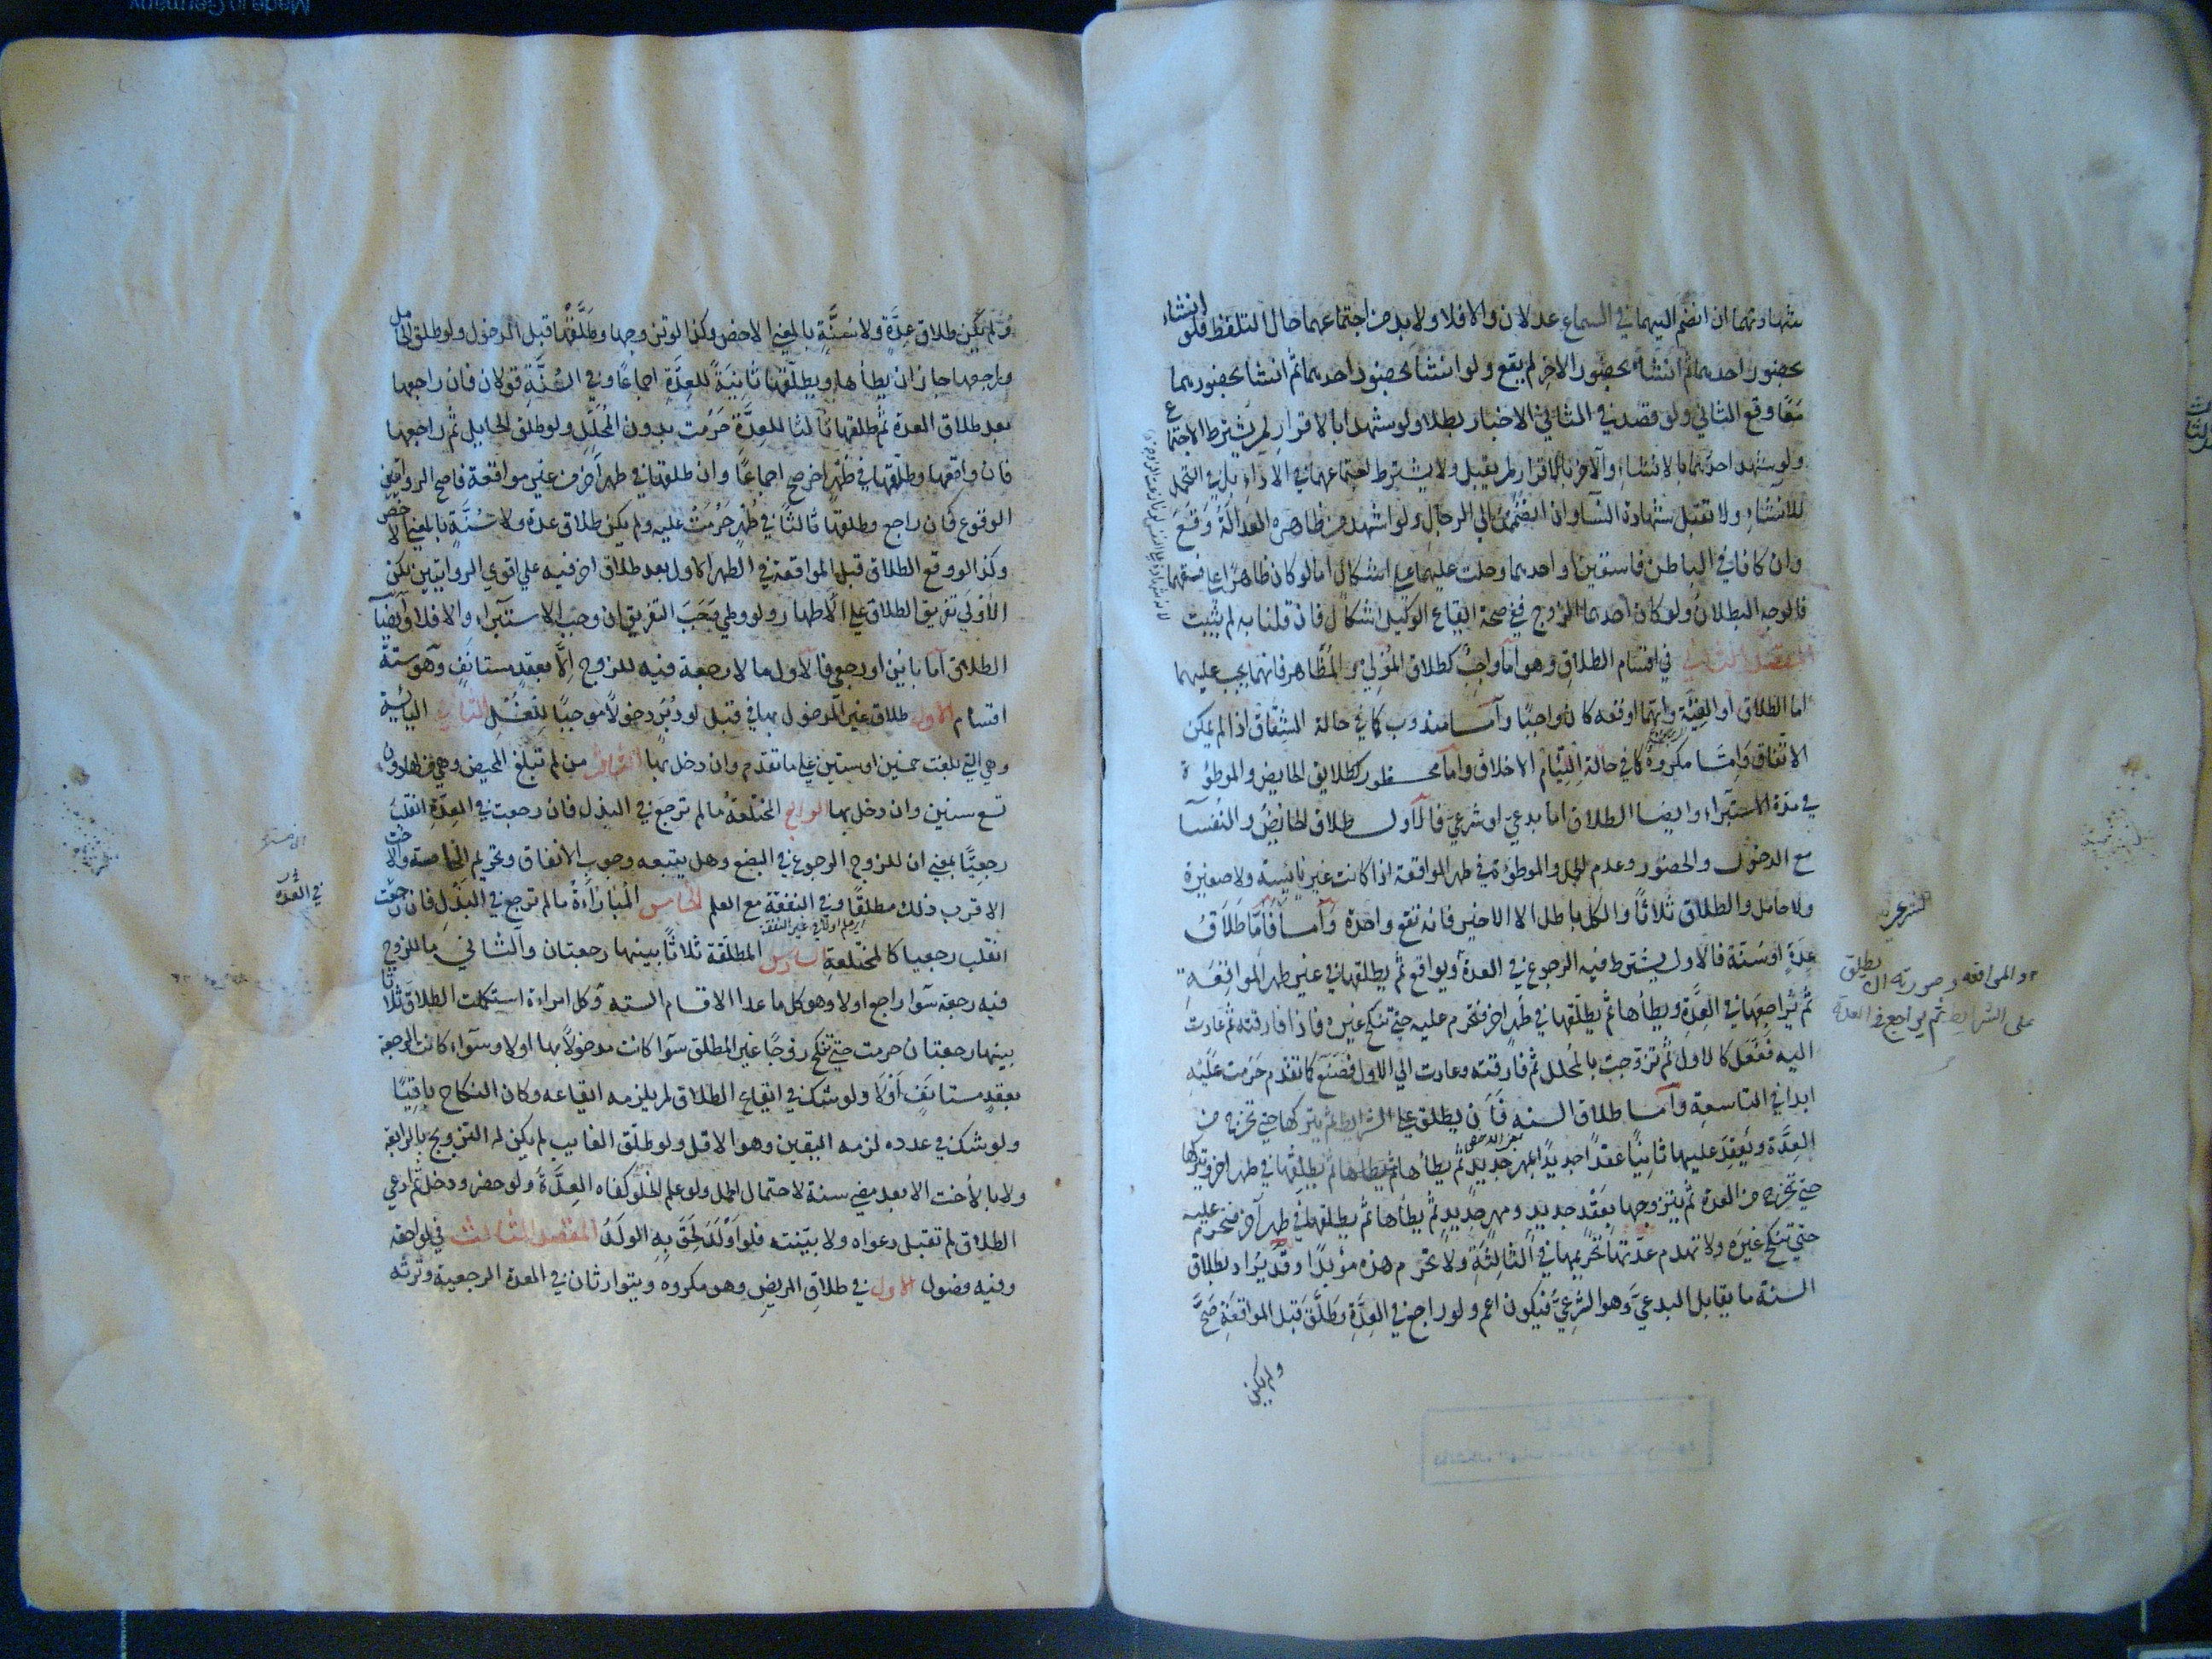 شهادتهما ان انضم اليهما في السماع عدلان والا فلا ولا بد من اجتماعهما حال التلفظ فلو انشاء
بحضور احدهما ثم انشاء بحضور الاخر لم يقع ولو انشا بحضور احدهما ثم انشا بحضورهما
معًا وقع الثاني ولو قصد في الثاني الاخبار بطلا ولو شهدا بالاقرار لم يشترط الاجتماع
ولو شهد احدهما بالانشاء والآخر بالاقرار لم يقبل ولا يشترط اجتماعهما في الاداء بل في التحمل
للانشاء ولا تقبل شهادة النسآ وان انضممن الي الرجال ولو اشهد من ظاهره العدالة وقع
وان كانا في الباطن فاسقين او احدهما وحلت عليهما علي اشكال اما لو كان ظاهرًا
فالوجه البطلان ولو كان احدهما الزوج ففي صحة ايقاع الوكيل اشكال فان قلنا به لم يثبت
المقصد الثاني في اقسام الطلاق وهو اما واجب كطلاق المؤلي والمظاهر فانهما يجب عليهما
اما الطلاق او الفئة وايهما اوقعه كان واجبًا واما مندوب كما في حالة الشقاق اذا لم يمكن
الاتفاق واما مكروه كما في حالة التيام الاخلاق واما محظور كطلاق الحايض والموطؤة
في مدة الاستبراء وايضا الطلاق اما بدعي او شرعي فالاول طلاق الحائض والنفسآ
مع الدخول والحضور وعدم الحمل والموطؤة في طهر المواقعة اذا كانت غير يائسة ولا صغيرة
ولا حامل والطلاق ثلاثاً والكل باطل الا الاخير فانه تقع واحدة وآما فاما طلاق
عدة او سنة فالاول يشترط فيه الرجوع في العدة ويواقع ثم يطلقها في غير طهر المواقعة
ثم يراجعها في العدة ويطأها ثم يطلقها في طهر اخر فتحرم عليه حتي تنكح غيره فاذا فارقته ثم عادت
اليه ففعل كالاول ثم تزوجت بالمحلل ثم فارقته وعادت الي الاول فصنع كما تقدم حرمت عليه
ابدا في التاسعة وآما طلاق السنه فان يطلق علي الشرايط ثم يتركها حتي تخرج من
العدة ويعقد عليها ثانيًا عقدًا جديدًا بمهر جديد ثم يطأها ثم يطلقها في طهر اخر ويتركها
حتي تخرج من العدة ثم يتزوجها بعقد جديد ومهر جديد ثم يطأها ثم يطلقها في طهر آخر فتحرم عليه
حتي تنكح غيره ولا تهدم عدتها تحريمها في الثالثة ولا تحرم هذه مؤبدًا وقد يراد بطلاق
السنة ما يقابل البدعي وهو الشرعي فيكون اعم ولو راجع في العدة وطلق قبل المواقعة صح
ولم يكن
الشرعي
والمواقعه وصورته ان يطلق
على الشرايط ثم يراجع في العدة
ولم يكن طلاق عدة ولا سنة بالمعني الاخص وكذا لو تزوجها وطلقها قبل الدخول ولو طلق الحامل
وراجعها جاز ان يطأها ويطلقها ثانية للعدة اجماعًا وفي السنة قولان فان راجعها
بعد طلاق العدة ثم طلقها ثالثا للعدة حرمت بدون المحلل ولو طلق الحايل ثم راجعها
فان واقعها وطلقها في طهر اخر صح اجماعًا وان طلقها في طهر اخر من غير مواقعة فاصح الروايتين
الوقوع فان راجع وطلقها ثالثاً في طهر حرمت عليه ولم يكن طلاق عدة ولا سنة بالمعني الاخص
وكذا لو وقع الطلاق قبل المواقعة في الطهر الاول بعد طلاق اخر فيه علي اقوي الروايتين لكن
الاولي تفريق الطلاق علي الاطهار ولو وطي وجب التفريق ان وجب الاستبراء والا فلا وايضآ
الطلاق اما باين او رجعي فالاول ما لا رجعة فيه للزوج الا بعقد مستانف وهو ستة
اقسام الاول طلاق غير المدخول بها في قبل او دبر دخولاً موجبًا للغسل الثاني اليائسة
وهي التي بلغت خمسين او ستين علي ما تقدم وان دخل بها الثالث من لم تبلغ المحيض وهي من لها دون
تسع سنين وان دخل بها الرابع المختلعة ما لم ترجع في البذل فان رجعت في العدة انقلب
رجعيًا بمعني ان للزوج الرجوع في البضع وهل يتبعه وجوب الانفاق وتحريم الخامسة والاخت
الاقرب ذلك مطلقًا وفي النفقة مع العلم الخامس المباراة ما لم ترجع في البذل فان رجعت
في العدة
انقلب رجعيا كالمختلعة السادس المطلقة ثلاثاً بينها رجعتان والثاني ما للزوج
فيه رجعة سوآ راجع او لا وهو كل ما عدا الاقسام الستة وكل امراءة استكملت الطلاق ثلاثا
بينها رجعتان حرمت حتي تنكح زوجًا غير المطلق سوآ كانت مدخولاً بها او لا وسوآء كانت الرجعة
بعقد مستانف او لا ولو شك في ايقاع الطلاق لم يلزمه ايقاعه وكان النكاح باقيًا
ولو شك في عدده لزمه اليقين وهو الاقل ولو طلق الغايب لم يكن له التزويج بالرابعة
ولا بالأخت الا بعد مضي سنة لاحتمال الحمل ولو علم الخلو كفاه العدة ولو حضر ودخل ثم ادعي
الطلاق لم تقبل دعواه ولا بينته فلو اولد لحق به الولد المقصد الثالث في لواحقه
وفيه فصول الاول في طلاق المريض وهو مكروه ويتوارثان في العدة الرجعية وترثه